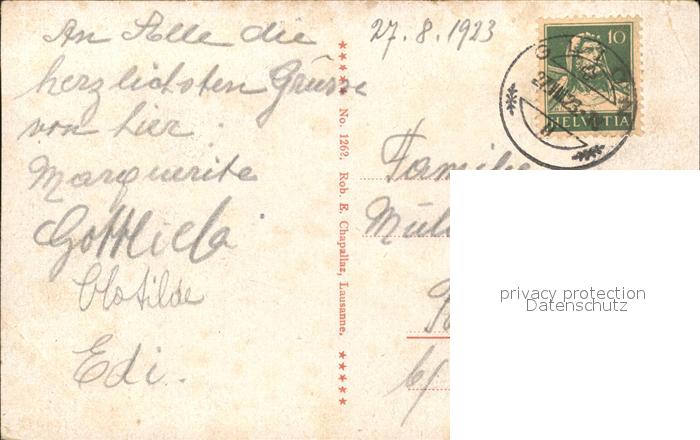 An Alle die
herzlichsten Grüsse
von hier.
Marguerite
Gottlieb
Clotilde
Edi.
★★★★★ No. 1262. Rob. E. Chapallaz, Lausanne. ★★★★★
27. 8. 1923
10
HELVETIA
Familie
privacy protection
Datenschutz